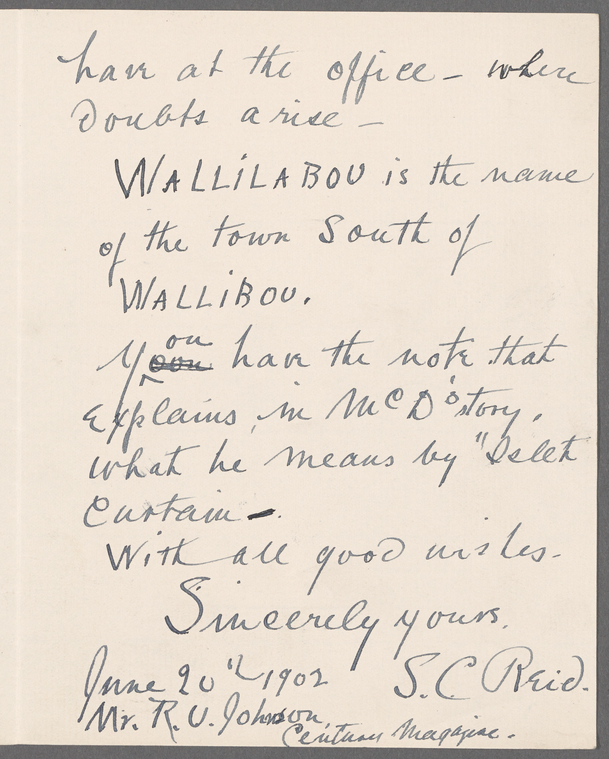 have at the office – where
Doubts arise –
WALLILABOU is the name
of the town South of
WALLIBOU.
You have the note that
Explains, in McD's story,
what he means by "Islet
Curtain –
With all good wishes.
Sincerely yours.
June 20th 1902 S. C Reid.
Mr. R. U. Johnson,
Century Magazine.